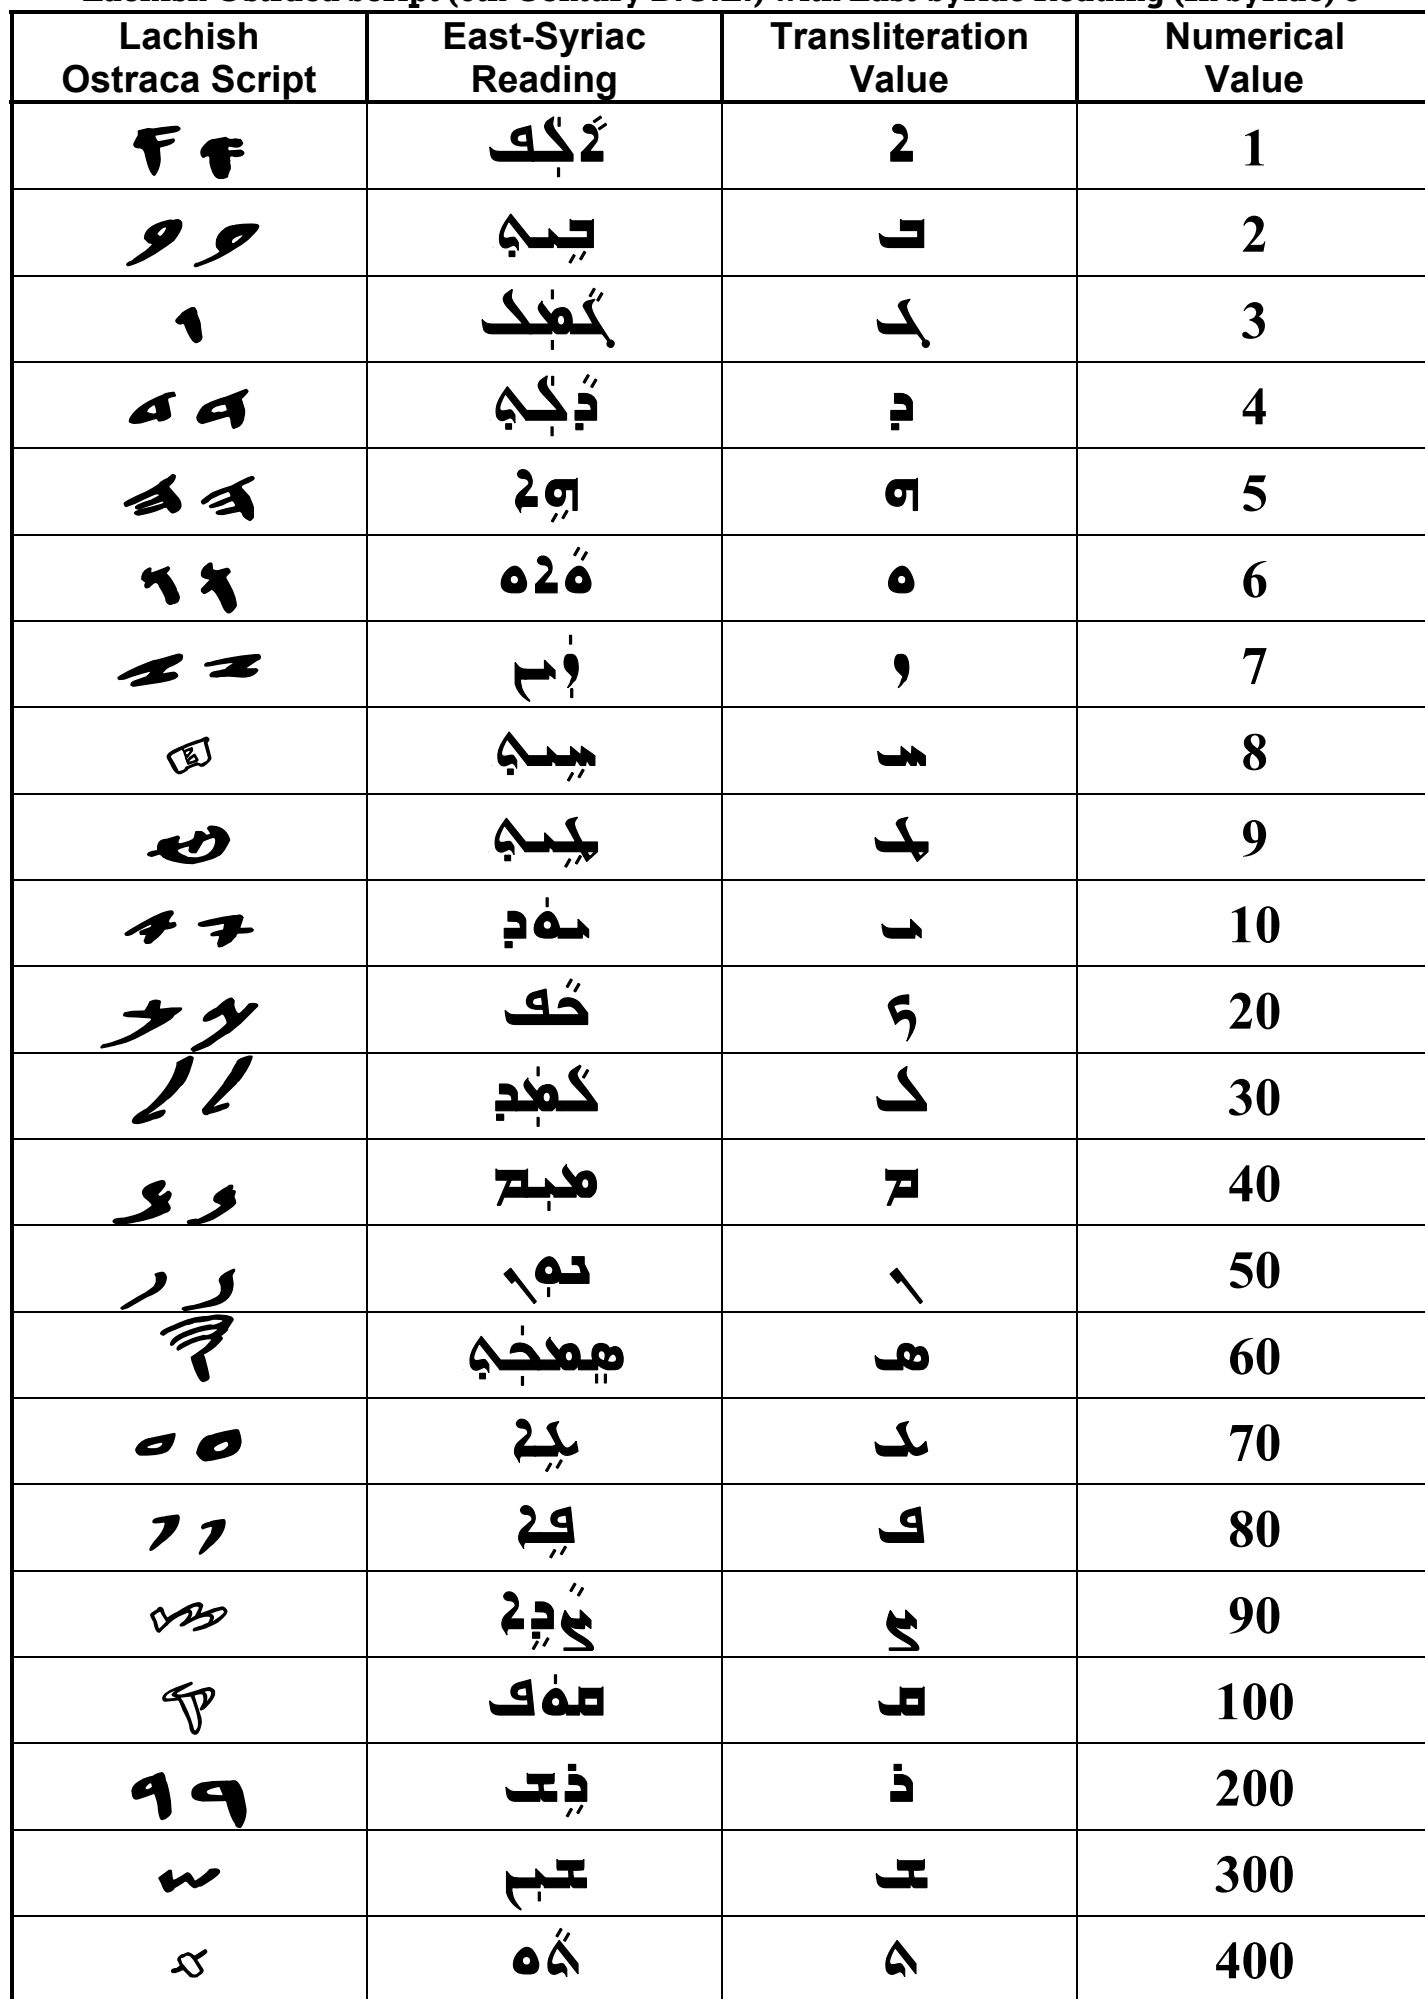 Lachish Ostraca Script | East-Syriac Reading | Transliteration Value | Numerical Value
ܐܵܠܲܦ ܐ 1
ܒܹܝܬ݂ ܒ 2
ܓܵܡܲܠ ܓ 3
ܕܵܠܲܬ݂ ܕ 4
ܗܹܐ ܗ 5
ܘܵܐܘ ܘ 6
ܙܲܝܢ ܙ 7
ܚܹܝܬ݂ ܚ 8
ܛܹܝܬ݂ ܛ 9
ܝܘܿܕ ܝ 10
ܟܵܦ ܟ 20
ܠܵܡܲܕ ܠ 30
ܡܝܼܡ ܡ 40
ܢܘܼܢ ܢ 50
ܣܸܡܟܲܬ݂ ܣ 60
ܥܹܐ ܥ 70
ܦܹܐ ܦ 80
ܨܵܕܹܐ ܨ 90
ܩܘܿܦ ܩ 100
ܪܹܫ ܪ 200
ܫܝܼܢ ܫ 300
ܬܵܘ ܬ 400